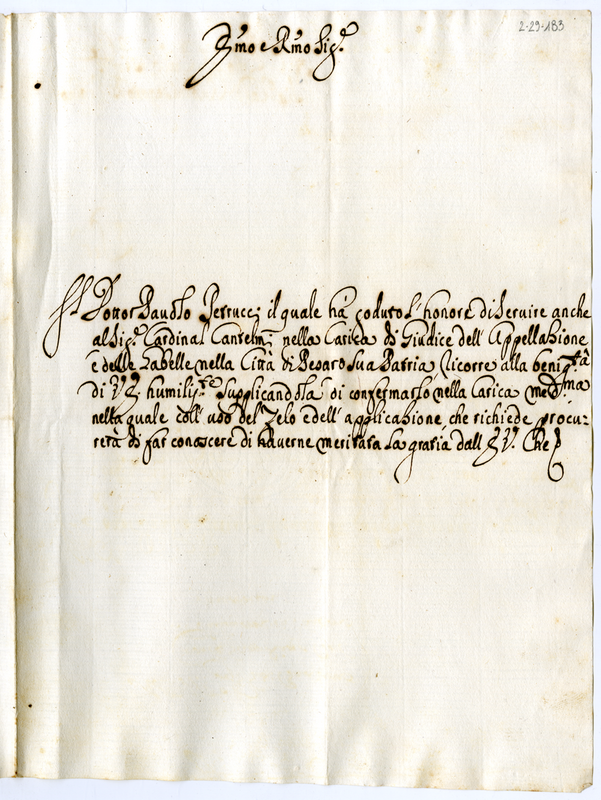 2-29-183
Ill.mo e R.mo Sig.e
Il Dottor Paudlo Petrucci il quale hà goduto l'honore di servire anche
al Sig.e Cardinal Cantelmi nella Carica di Giudice dell'Appellatione
e delle Gabelle nella Città di Pesaro sua Patria ricorre alla benig.tà
di V.S. humilis.te supplicandola di confermarlo nella Carica med.ma
nella quale coll'uso del zelo e dell'applicatione, che richiede procu-
rerà di far conoscere di haverne meritata la gratia dall'V. Che